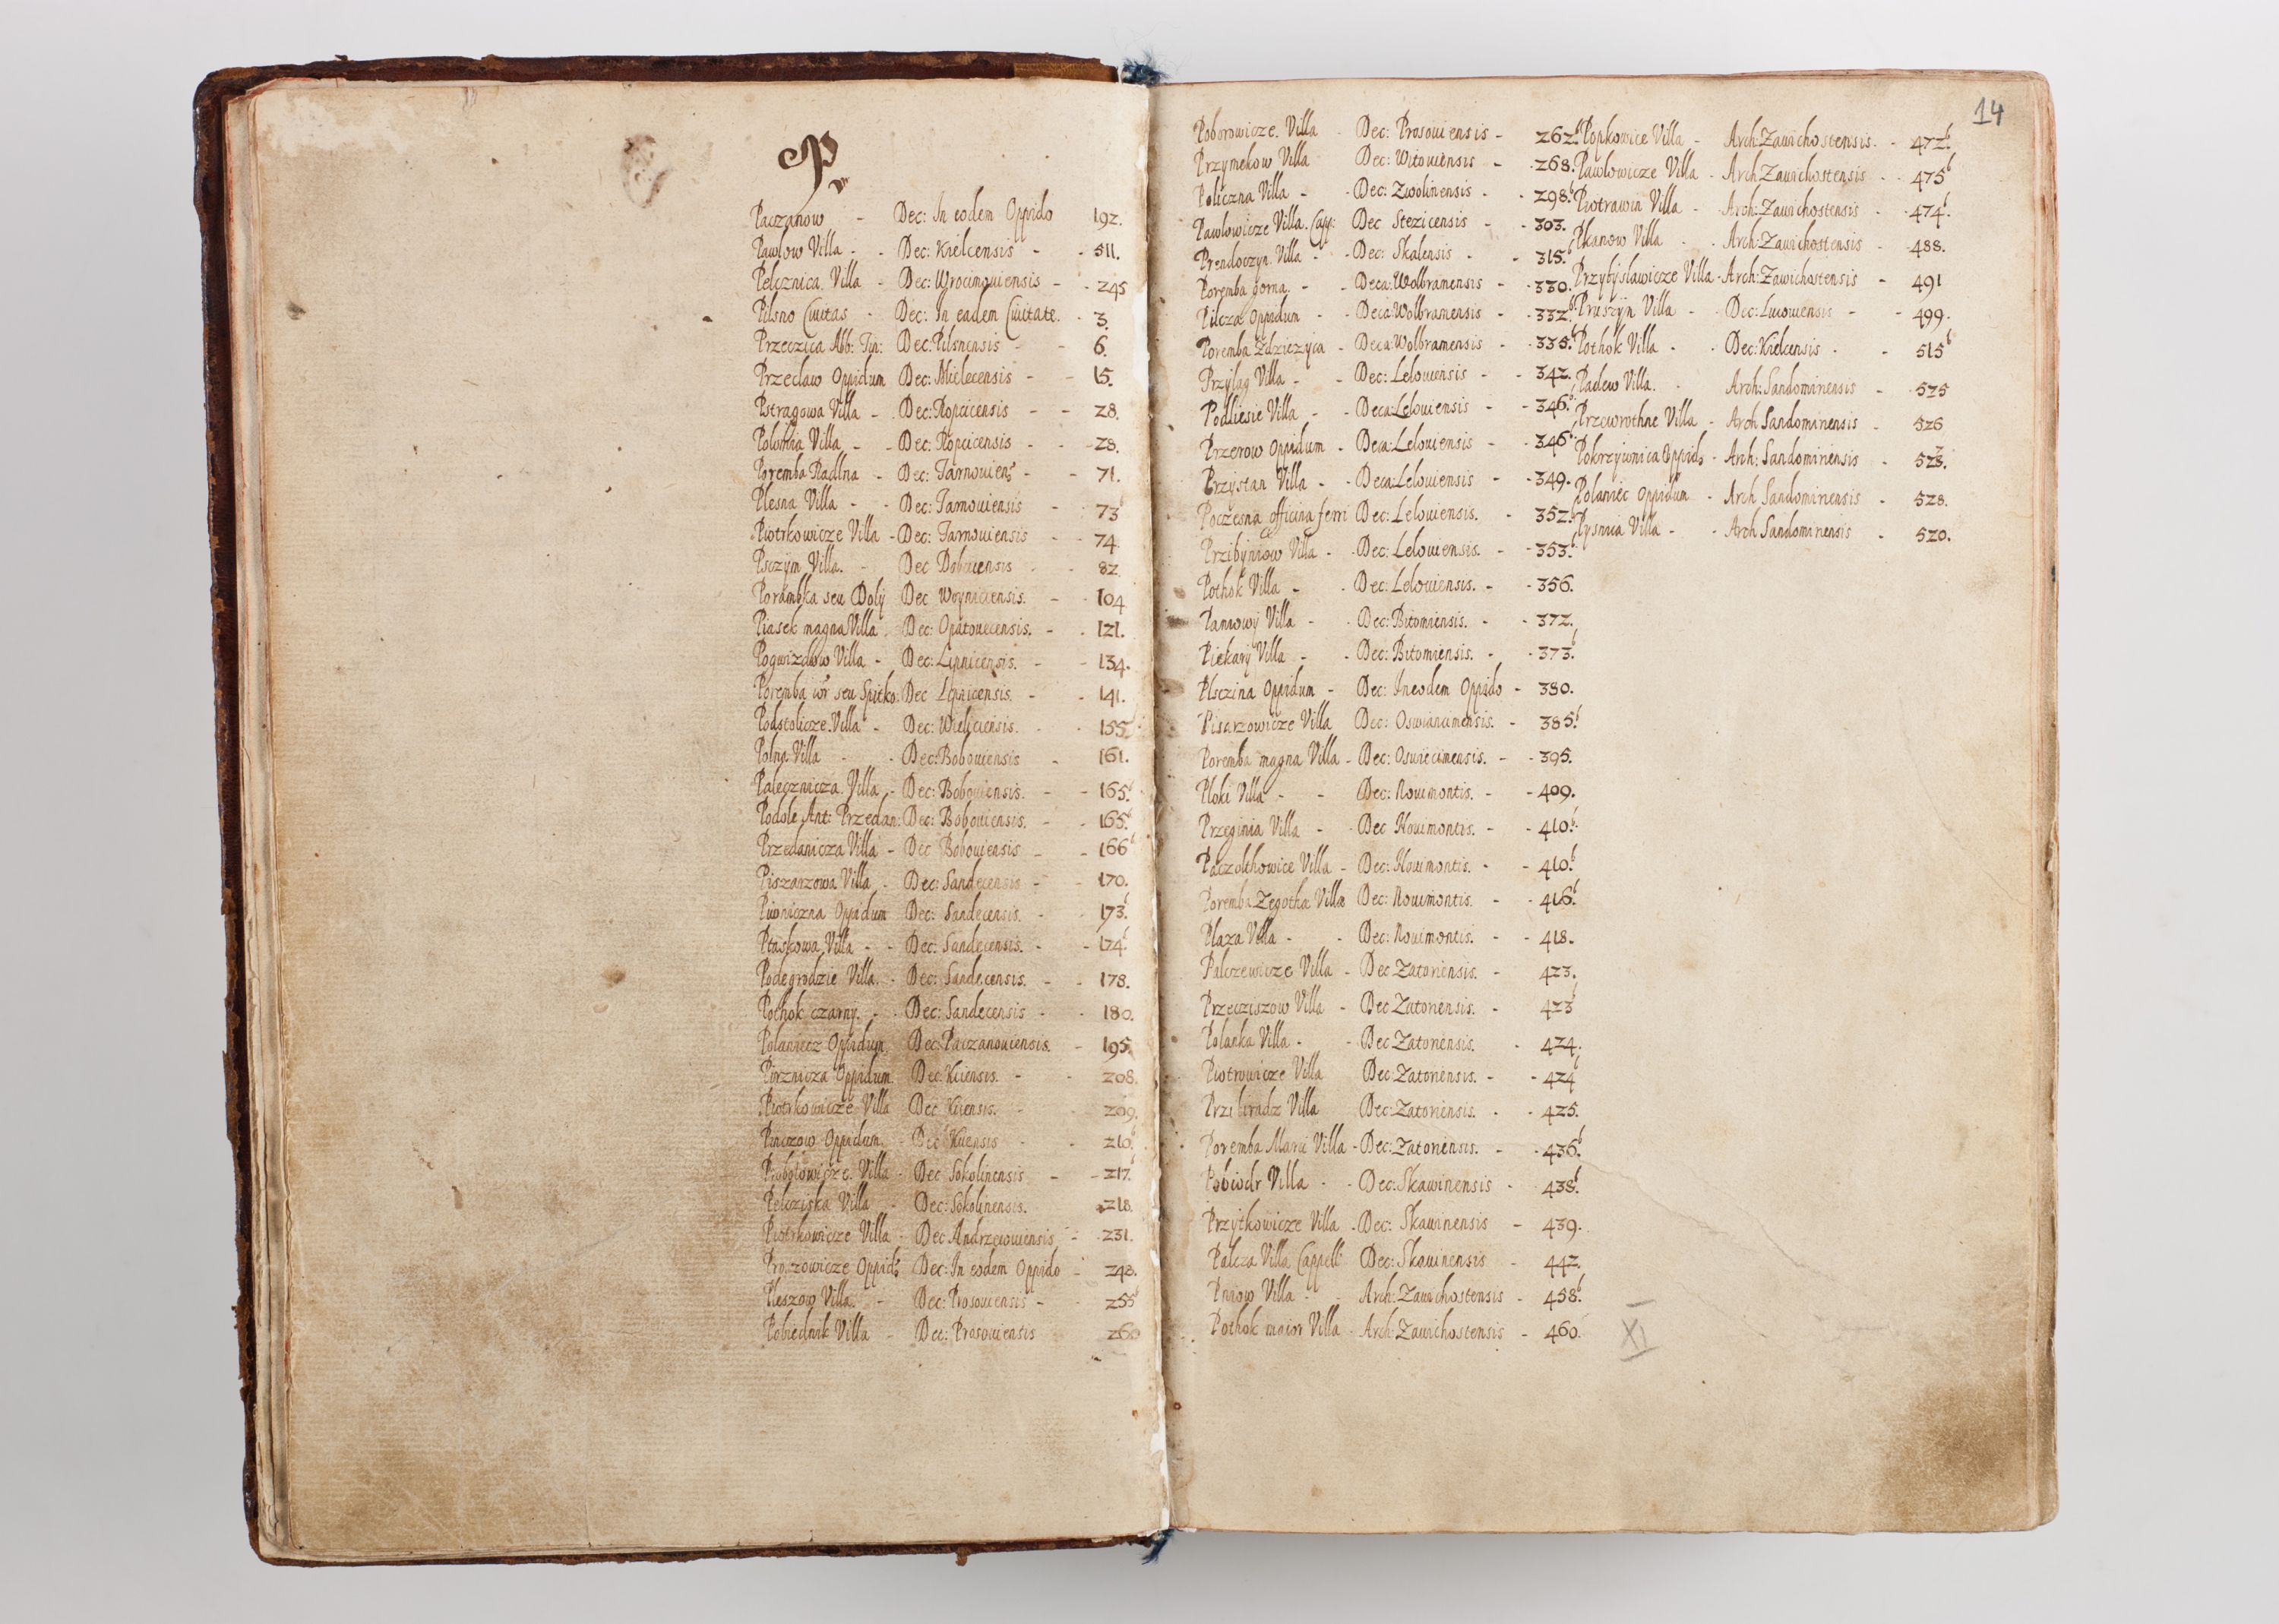 P
Paczanow - Dec: In eodem Oppido 192.
Pawlow Villa - - Dec: Kielcensis - - 511.
Pelcznica Villa - Dec: Wrocimouiensis - - 245
Pilsno Ciuitas - Dec: In eadem Ciuitate. - 3.
Przeczica Abb: Tin: Dec: Pilsnensis - - 6.
Przeclaw Oppidum Dec: Mielecensis - - 15.
Pstragowa Villa - Dec: Ropcicensis - - 28.
Polomia Villa - - Dec: Ropcicensis - - 28.
Poremba Radlna - Dec: Tarnouiens - - 71.
Plesna Villa - - Dec: Tarnouiensis - 73b
Piotrkowicze Villa - Dec: Tarnouiensis - - 74
Psczym Villa. - Dec Dobciensis - - 82
Porambka seu Doly Dec Woyniciensis. - - 104
Piasek magna Villa Dec: Opatouecensis. - - 121.
Pogwizdow Villa - Dec: Lipnicensis. - - 134.
Poremba seu Spitko: Dec Lipnicensis. - - 141.
Podstolicze Villa - Dec: Wieliciensis. - - 155.
Polna Villa - - Dec: Bobouiensis - 161.
Palecznicza Villa - Dec: Bobouiensis. - - 165b.
Podole Ant: Przedan: Dec: Bobouiensis. - - 165b.
Przedanicza Villa - Dec Bobouiensis - - 166b
Piszarzowa Villa - Dec: Sandecensis - - 170.
Piwniczna Oppidum Dec: Sandecensis. - 173b.
Ptaskowa Villa - - Dec: Sandecensis. - - 174b
Podegrodzie Villa. - Dec: Sandecensis. - - 178.
Pothok czarny. - - Dec: Sandecensis - - 180.
Polaniecz Oppidum Dec: Paczanouiensis. - 195.
Pierznicza Oppidum Dec: Kiiensis. - - 208.
Piotrkowicze Villa Dec Kiiensis. - 209.
Pinczow Oppidum - Dec Kiiensis - - 210b.
Probolowicze Villa - Dec Sokolinensis - - 217b.
Pelcziska Villa - Dec: Sokolinensis. 218
Piotrkowicze Villa - Dec Andrzeiouiensis - - 231.
Proszowicze Oppido Dec: In eodem Oppido - 248.
Pleszow Villa. - Dec: Prosouiensis - - 255b
Pobiednik Villa - Dec: Prosouiensis 260
14
Poborowicze. Villa - Dec: Prosouiensis - 262b.
Przymekow Villa Dec: Witouiensis - - 268.
Policzna Villa - - Dec: Zwolinensis - - 298b.
Pawlowicze Villa. Capp: Dec Stezicensis - - 303.
Prendoczyn Villa - - Dec: Skalensis - - 315b.
Poremba gorna. - - Deca: Wolbramensis - - 330.
Pilcza Oppidum - - Deca: Wolbramensis - - 332b.
Poremba Zdziezyca - Deca: Wolbramensis - - 335b.
Przylag Villa - - Dec: Lelouiensis - - 342.
Podliesie Villa - - Deca: Lelouiensis - - 346b.
Przerow Oppidum - Deca: Lelouiensis - - 346b.
Przystan Villa - - Deca: Lelouiensis - - 349.
Poczesna officina ferri Dec: Lelouiensis. - 352b.
Przibyniow Villa - - Dec: Lelouiensis. - - 353b.
Pothok Villa - - Dec: Lelouiensis. - - 356.
Paniowy Villa - - Dec: Bitomiensis. - - 372.
Piekary Villa - - Dec: Bitomiensis. - - 373b.
Plsczina Oppidum - Dec: In eodem Oppido - 380.
Pisarzowicze Villa Dec: Oswiancimensis. - 385b.
Poremba magna Villa - Dec: Oswiecimensis. - - 395.
Ploki Villa - - Dec: Nouimontis. - - 409.
Przeginia Villa - - Dec Nouimontis. - - 410b.
Paczolthowice Villa - Dec: Nouimontis. - - 410b.
Poremba Zegotha Villa Dec: Nouimontis. - - 416b.
Plaza Villa - - Dec: Nouimontis. - - 418.
Palczewicze Villa - Dec Zatoriensis. - 423.
Przecziszow Villa - Dec Zatoriensis. - 423b
Polanka Villa - - Dec Zatoriensis. - 424.
Piotrowicze Villa Dec: Zatoriensis. - - 424b
Przibradz Villa Dec: Zatoriensis. - - 425.
Poremba Marci Villa - Dec: Zatoriensis. - - 436b.
Pobiedr Villa - - Dec: Skawinensis - 438b.
Przytkowicze Villa - Dec: Skawinensis - 439.
Palcza Villa Cappell Dec: Skauinensis - 442.
Pniow Villa - - Arch: Zawichostensis - 458b.
Pothok maior Villa - Arch: Zawichostensis - 460.
Popkowice Villa - Arch: Zawichostensis. - 472b.
Pawlowicze Villa - Arch Zawichostensis - - 475b
Piotrawin Villa - - Arch: Zawichostensis - - 474b.
Pkanow Villa - - Arch: Zawichostensis - - 488.
Przybyslawicze Villa - Arch: Zawichostensis - 491
Pruszyn Villa - - Dec: Lucouiensis - - 499.
Pothok Villa - - Dec: Kielcensis - - 515b
Padew Villa. - Arch: Sandomiriensis - 525
Przewrothne Villa - Arch Sandomiriensis - 526
Pokrziwnica Oppido - Arch: Sandomiriensis - 528.
Polaniec Oppidum - Arch Sandomiriensis - 528.
Pysnica Villa - - Arch Sandomiriensis - 520.
XI